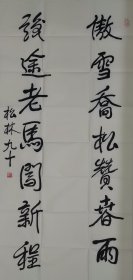 傲雪喬松贊春雨
識途老馬闖新程
松林九十